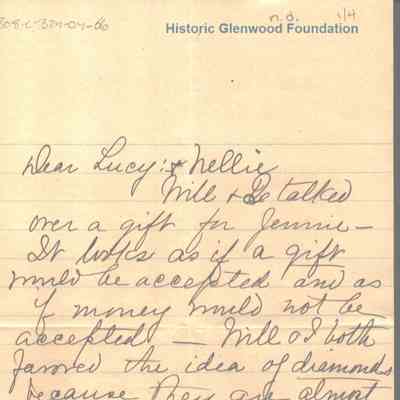 n.d. 1/4
Historic Glenwood Foundation
Dear Lucy: & Nellie
Will & talked
over a gift for Jennie —
It looks as if a gift
would be accepted and as
if money would not be
accepted — Will & I both
favored the idea of diamonds
because they are almost